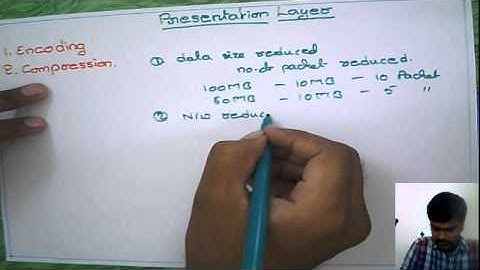 Presentation Layer
1. Encoding
2. Compression.
① data size reduced
no. of packet reduced.
100MB - 10MB - 10 Packet
50MB - 10MB - 5 "
② N/W reduc